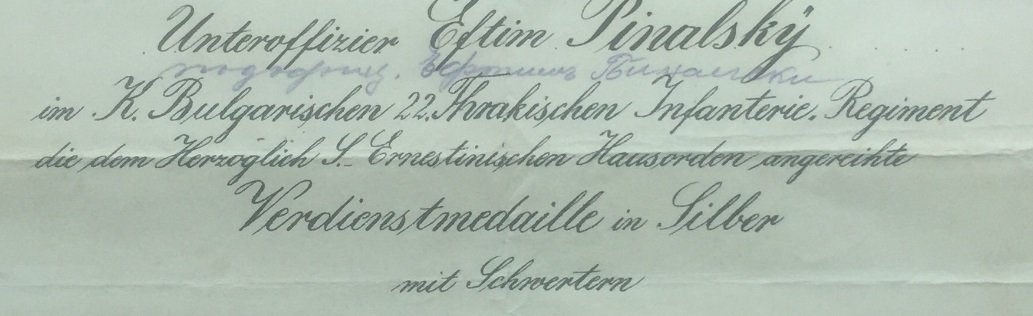 Unteroffizier Eftim Pinalskÿ
подофиц. Ефтимъ Биналски
im K. Bulgarischen 22. Thrakischen Infanterie. Regiment
die dem Herzoglich S. Ernestinischen Hausorden angereihte
Verdienstmedaille in Silber
mit Schwertern